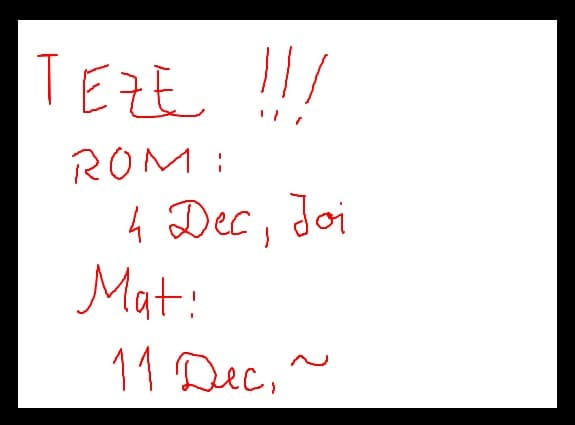 TEZE !!!
ROM:
4 Dec, Joi
Mat:
11 Dec, ~